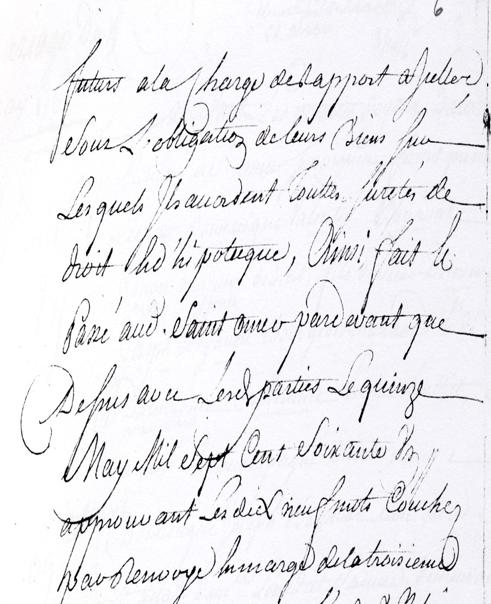 6
futurs a la Charge de rapport a Jullé
Sous L'obligation de leurs Biens sur
Lesquels Ils accordent touttes suretés de
droit d'hipoteque, Ainsi fait le
Passé aud. Saint omer pardevant que
Dessus avec Lesd parties Le quinze
May Mil Sept Cent Soixante dix
approuvant Les dix neuf mots Couchez
par Renvoye En marge de la troisieme